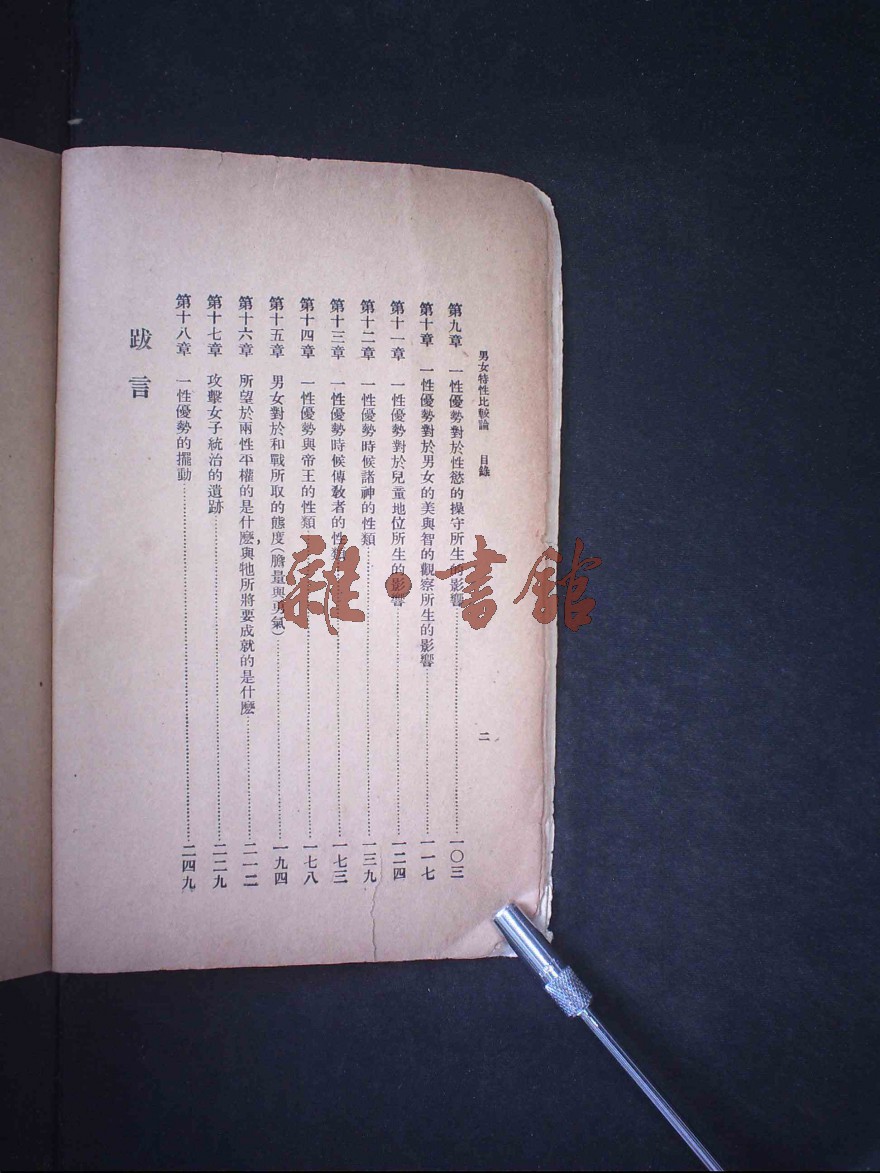 男女特性比較論 目錄 二
第九章 一性優勢對於性慾的操守所生的影響 一〇三
第十章 一性優勢對於男女的美與智的觀察所生的影響 一一七
第十一章 一性優勢對於兒童地位所生的影響 一二四
第十二章 一性優勢時候諸神的性類 一三九
第十三章 一性優勢時候傳敎者的性類 一七三
第十四章 一性優勢與帝王的性類 一七八
第十五章 男女對於和戰所取的態度(膽量與勇氣) 一九四
第十六章 所望於兩性平權的是什麼,與牠所將要成就的是什麼 二一二
第十七章 攻擊女子統治的遺跡 二二九
第十八章 一性優勢的擺動 二四九
跋言
雜·書館